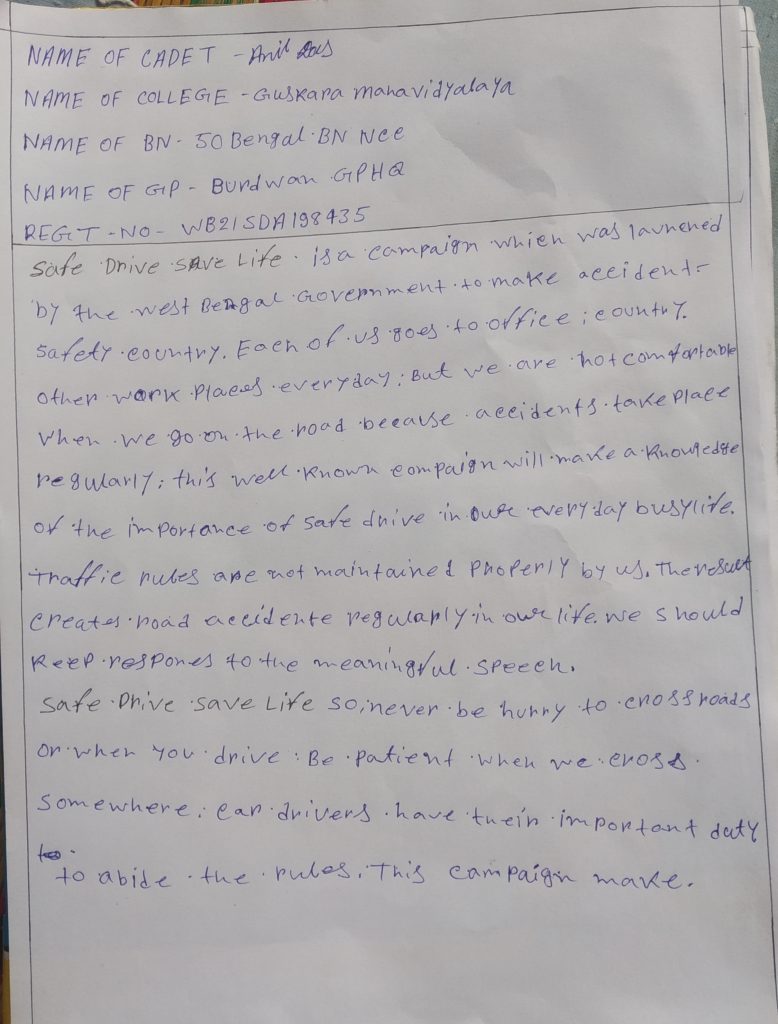 NAME OF CADET - Anil Das
NAME OF COLLEGE - Guskara mahavidyalaya
NAME OF BN - 50 Bengal BN Ncc
NAME OF GP - Burdwan GPHQ
REGT - NO - WB21SDA198435
Safe Drive save Life is a campaign which was launched
by the west Bengal Government to make accident-
safety country. Each of us goes to office ; country.
other work places everyday ; But we are not comfortable
when we go on the road because accidents take place
regularly ; this well known campaign will make a knowledge
of the importance of safe drive in our everyday busy life.
Traffic rules are not maintained properly by us. The result
creates road accidente regularly in our life. we should
keep respones to the meaningful speech.
Safe Drive save Life so, never be hurry to cross roads
or when you drive : Be patient when we cross
somewhere ; car drivers have their important duty
to
to abide the rules. This campaign make.